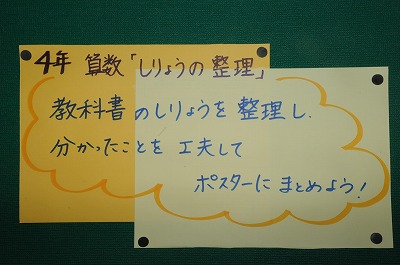 4年 算数「しりょうの整理」
教科書のしりょうを整理し、
分かったことを工夫して
ポスターにまとめよう!